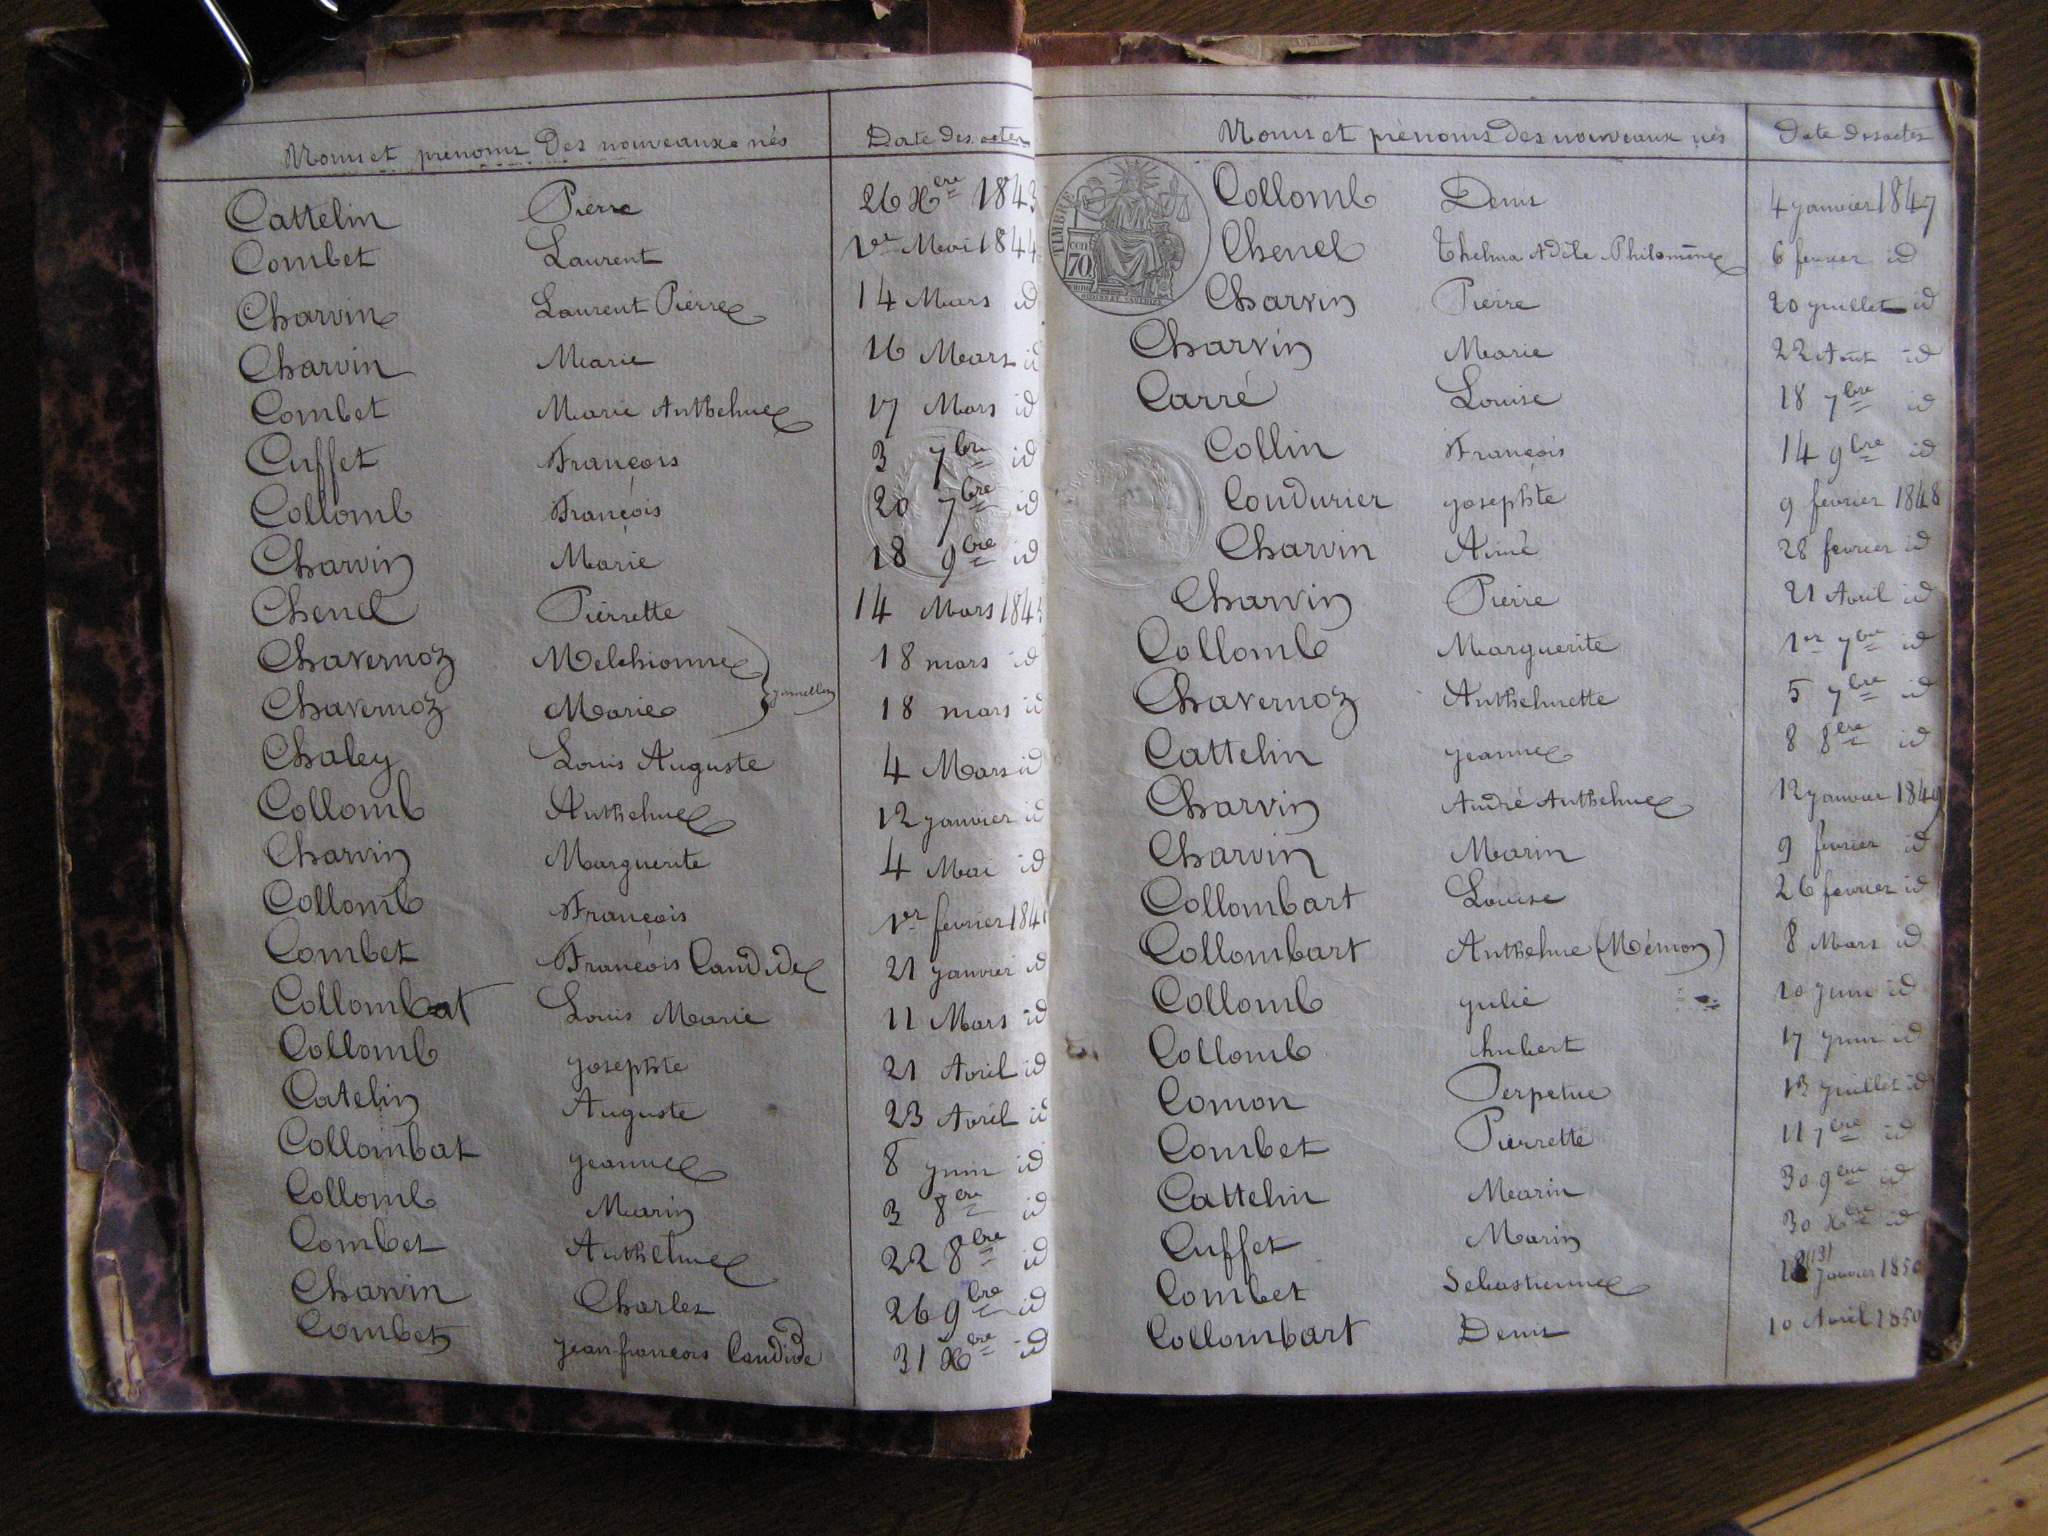 Noms et prénoms Des nouveaux nés Date des actes
Cattelin Pierre 26 Xbre 1843
Combet Laurent 1er Mai 1844
Charvin Laurent Pierre 14 Mars id
Charvin Marie 16 Mars id
Combet Marie Anthelme 17 Mars id
Cuffet François 3 7bre id
Collomb François 20 7bre id
Charvin Marie 18 9bre id
Chenel Pierrette 14 Mars 1845
Chavernoz Melchionne 18 mars id
jumelles
Chavernoz Marie 18 mars id
Chaley Louis Auguste 4 Mars id
Collomb Anthelme 12 janvier id
Charvin Marguerite 4 Mai id
Collomb François 1er fevrier
Combet François Candide 21 janvier id
Collombat Louis Marie 11 Mars id
Collomb josephte 21 Avril id
Catelin Auguste 23 Avril id
Collombat jeanne 8 juin id
Collomb Marin 3 8bre id
Combet Anthelme 22 8bre id
Charvin Charles 26 9bre id
Combet jean françois Candide 31 Xbre id
Noms et prénoms Des nouveaux nés Date des actes
TIMBRE
70
Collomb Denis 4 janvier 1847
Chenel Thelma Adèle Philomène 6 fevrier id
Charvin Pierre 20 juillet id
Charvin Marie 22 Août id
Carré Louise 18 7bre id
Collin François 14 9bre id
Coudurier josephte 9 fevrier 1848
Charvin Aimé 28 fevrier id
Charvin Pierre 21 Avril id
Collomb Marguerite 1er 7bre id
Chavernoz Anthelmette 5 7bre id
Cattelin jeanne 8 8bre id
Charvin André Anthelme 12 janvier 1849
Charvin Marin 9 fevrier id
Collombart Louise 26 fevrier id
Collombart Anthelme (Mémon) 8 Mars id
Collomb julie 10 juin id
Collomb hubert 17 juin id
Comon Perpetue 13 juillet id
Combet Pierrette 11 7bre id
Cattelin Marin 30 9bre id
Cuffet Marin 30 Xbre id
Combet Sebastienne (13) janvier 1850
Collombart Denis 10 Avril 1850